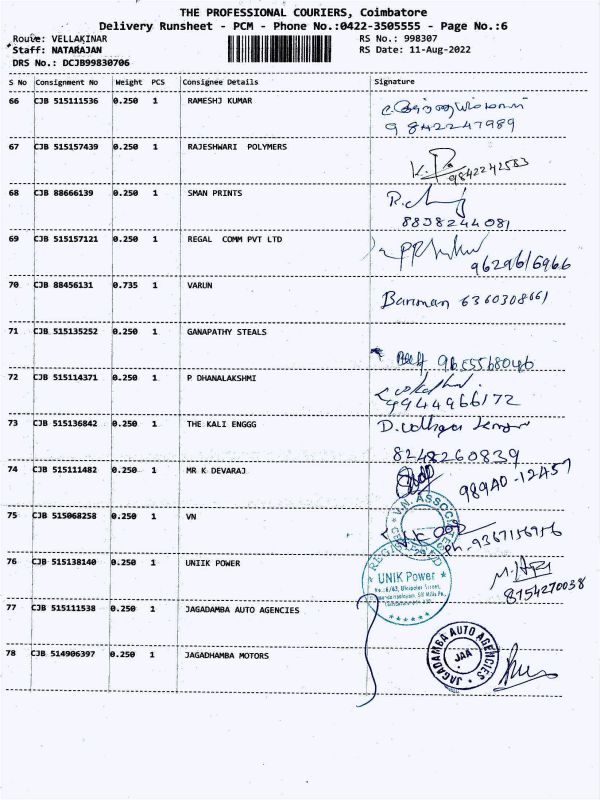 THE PROFESSIONAL COURIERS, Coimbatore
Delivery Runsheet - PCM - Phone No.:0422-3505555 - Page No.:6
Route: VELLAKINAR
RS No.: 998307
Staff: NATARAJAN
RS Date: 11-Aug-2022
DRS No.: DCJB99830706
S No Consignment No Weight PCS Consignee Details Signature
66 CJB 515111536 0.250 1 RAMESHJ KUMAR
9842247989
67 CJB 515157439 0.250 1 RAJESHWARI POLYMERS
9842242583
68 CJB 88666139 0.250 1 SMAN PRINTS
8838244081
69 CJB 515157121 0.250 1 REGAL COMM PVT LTD
9629616966
70 CJB 88456131 0.735 1 VARUN
Barman 6360308661
71 CJB 515135252 0.250 1 GANAPATHY STEALS
9655568046
72 CJB 515114371 0.250 1 P DHANALAKSHMI
9944966172
73 CJB 515136842 0.250 1 THE KALI ENGGG
8248260839
74 CJB 515111482 0.250 1 MR K DEVARAJ
98940-12457
75 CJB 515068258 0.250 1 VN
V.N. ASSOCIATES
Ph-9367156956
76 CJB 515138140 0.250 1 UNIIK POWER
UNIK Power
8754270038
77 CJB 515111538 0.250 1 JAGADAMBA AUTO AGENCIES
78 CJB 514906397 0.250 1 JAGADHAMBA MOTORS
JAGADAMBA AUTO AGENCIES
JAA